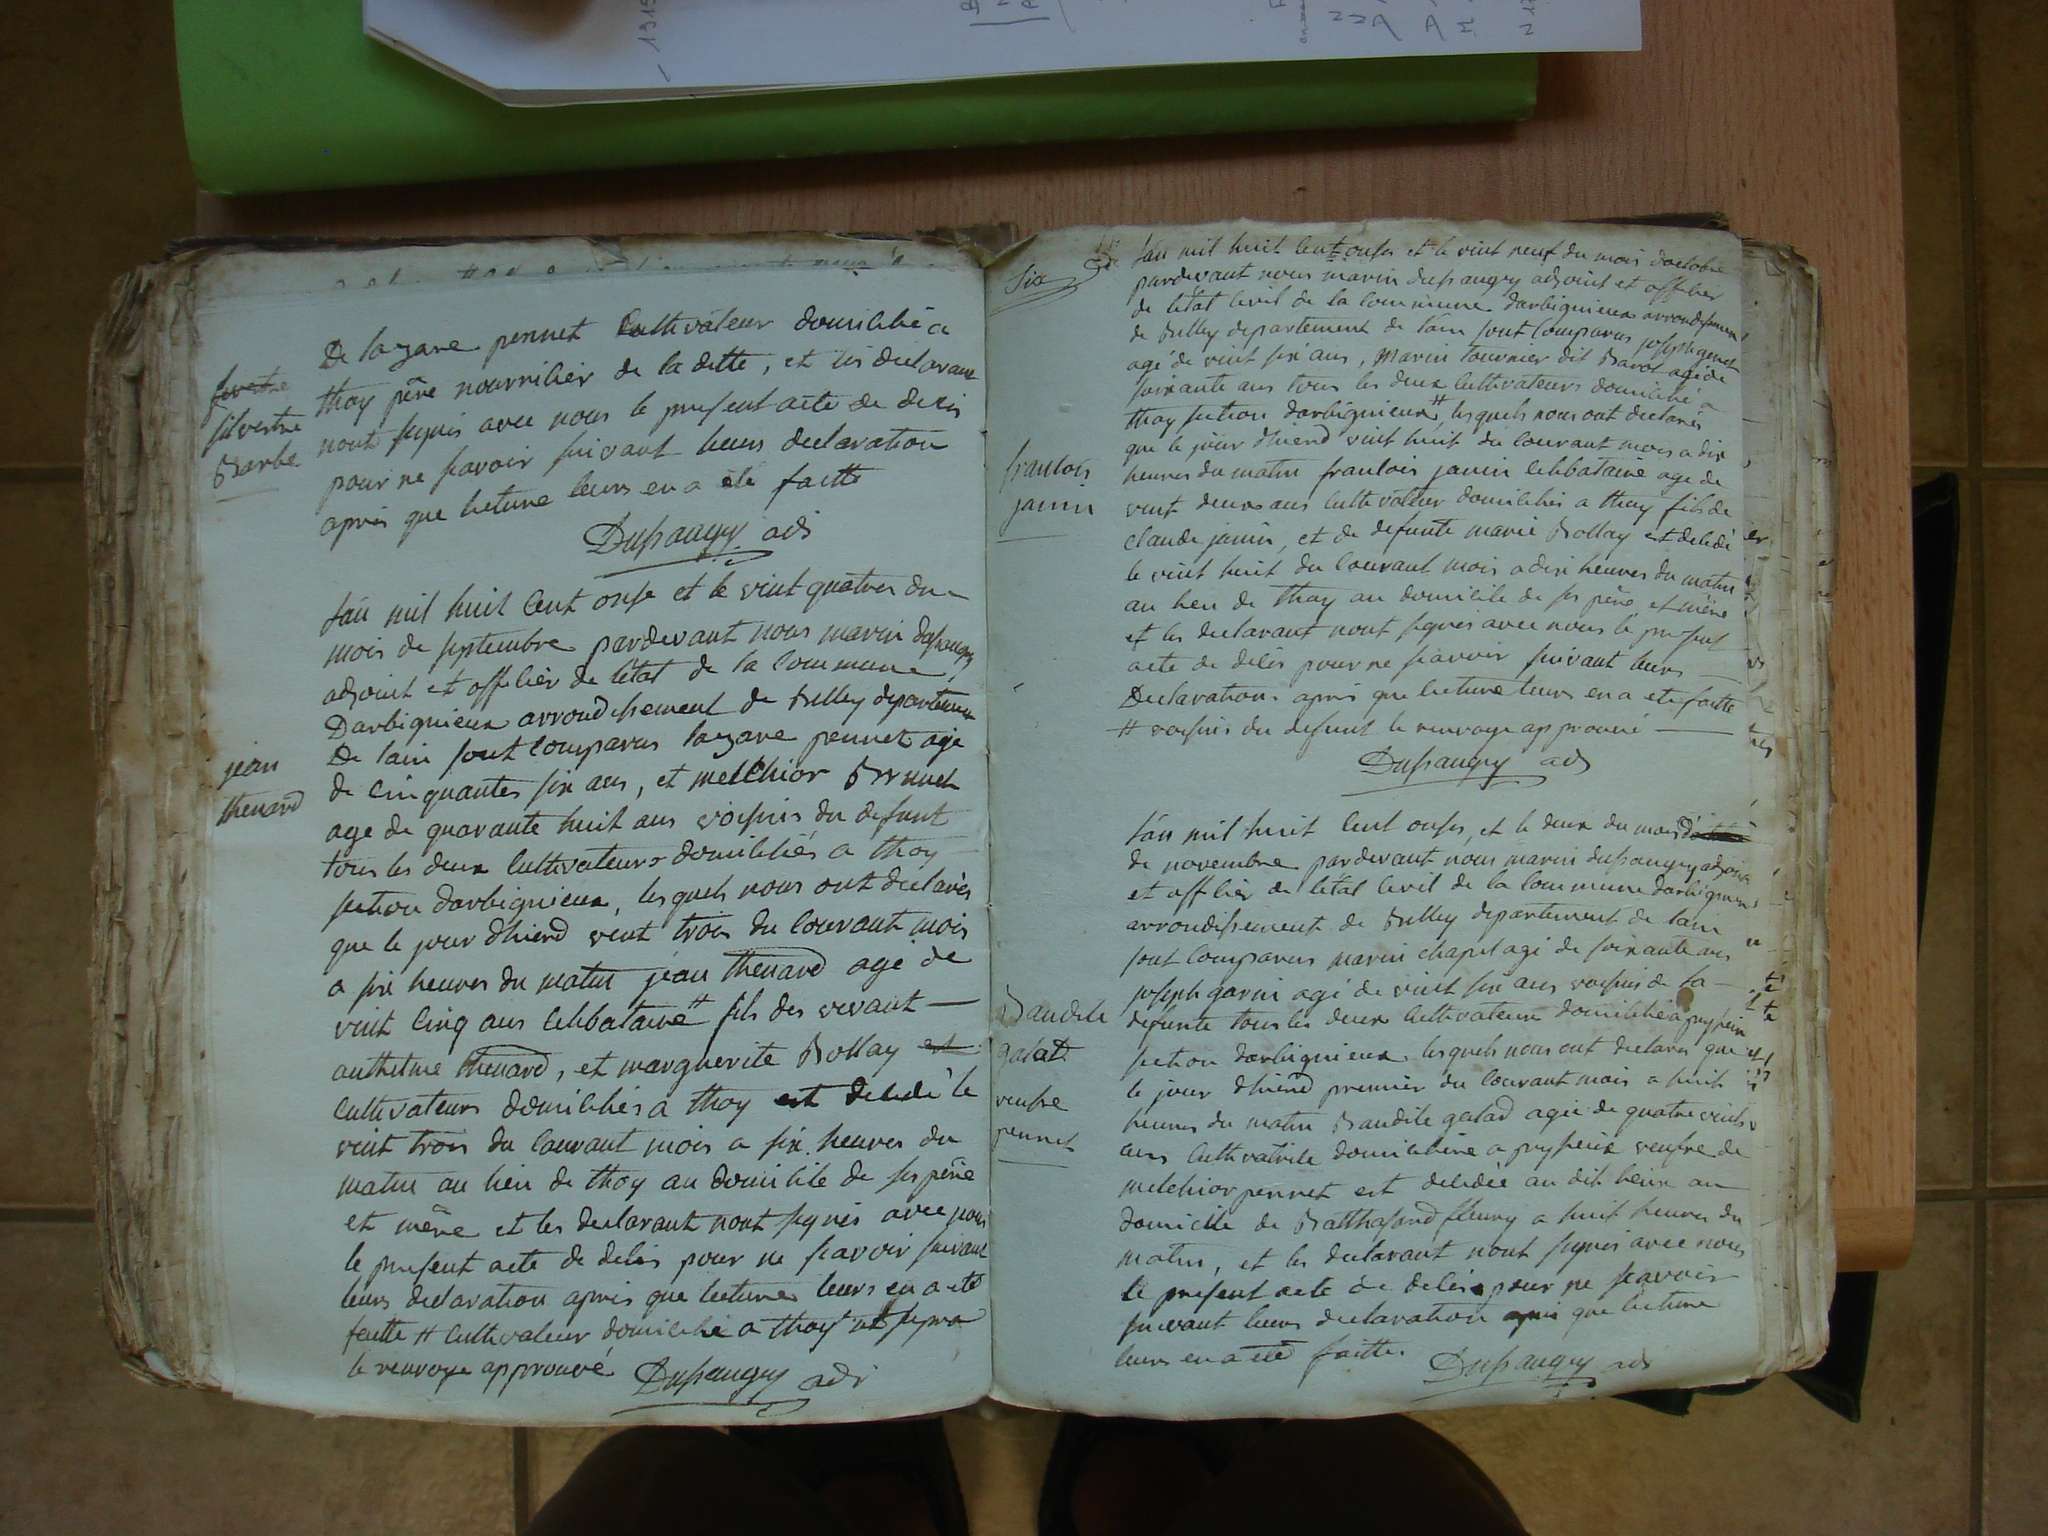 De lazare pennet Cultivateur domicilié a
thoy père nourricier de la ditte, et les declarant
nont signés avec nous le present acte de decés
pour ne scavoir suivant leurs declaration
apres que lecture leurs en a été faitte
Dussaugey adj
silvestre
Barbe
Lan mil huit Cent onse et le vint quatres du
mois de septembre pardevant nous marin dussaugey
adjoint et officier de létat de la Commune
Darbignieux arrondissement de Belley departemen
De lain sont Comparus lazare pennet agé
de Cinquantes six ans, et melchior Brunet
age de quarante huit ans voisins du defunt
tous les deux Cultivateurs domiciliés a thoy
section darbignieux, lesquels nous ont déclarés
que le jour dhierd vint trois du Courant mois
a six heures du matin jean thenard agé de
vint Cinq ans Celibataire # fils des vivant
anthelme thenard, et marguerite Bollay est
Cultivateurs domiciliés a thoy est decedé le
vint trois du Courant mois a six heures du
matin au lieu de thoy au domicile de ses père
et mère et les declarant nont signés avec nous
le present acte de decés pour ne scavoir suivant
leurs declaration apres que lecture leurs en a eté
faitte # Cultivateur domicilié a thoy
le renvoye approuvé Dussaugey adj
jean
thenard
Six
Lan mil huit Cent onses et le vint neuf du mois doctobre
pardevant nous marin dussaugey adjoint et officier
de létat Civil de la Commune darbignieux arrondissement
de Belley departement de lain sont Comparus joseph genet
agé de vint six ans, marin tournier dit Barol agé de
soixante ans tous les deux Cultivateurs domiciliés a
thoy section darbignieux #, lesquels nous ont declarés
que le jour dhierd vint huit du Courant mois a dix
heures du matin francois janin Celibataire age de
vint deux ans Cultivateur domiciliés a thoy fils de
Claude janin, et de defunte marie Bollay est decedé
le vint huit du Courant mois a dix heures du matin
au lieu de thoy au domicile de ses père et mère
et les declarant nont signés avec nous le present
acte de decés pour ne scavoir suivant leurs
Declarations apres que lecture leurs en a eté faitte
# voisins du defunt le renvoye approuvé
Dussaugey adj
francois
janin
Lan mil huit Cent onses, et le deux du mois
de novembre pardevant nous marin dussaugey adjoint
et officier de létat Civil de la Commune darbignieux
arrondissement de Belley departement de lain
sont Comparus marin chapel agé de soixante ans
joseph garin agé de vint six ans voisins de la
defunte tous les deux Cultivateurs domiciliés a peyzieux
section darbignieux lesquels nous ont declarés que
le jour dhierd premier du Courant mois a huit
heures du matin Bandile galad agée de quatre vints
ans Cultivatrice domiciliée a peyzieux veufve de
melchior pennet est decedée au dit lieux au
domicile de Balthasard fleury a huit heures du
matin, et les declarant nont signés avec nous
le present acte de decés pour ne scavoir
suivant leurs declaration apres que lecture
leurs en a eté faitte. Dussaugey adj
Bandile
galad
veufve
pennet